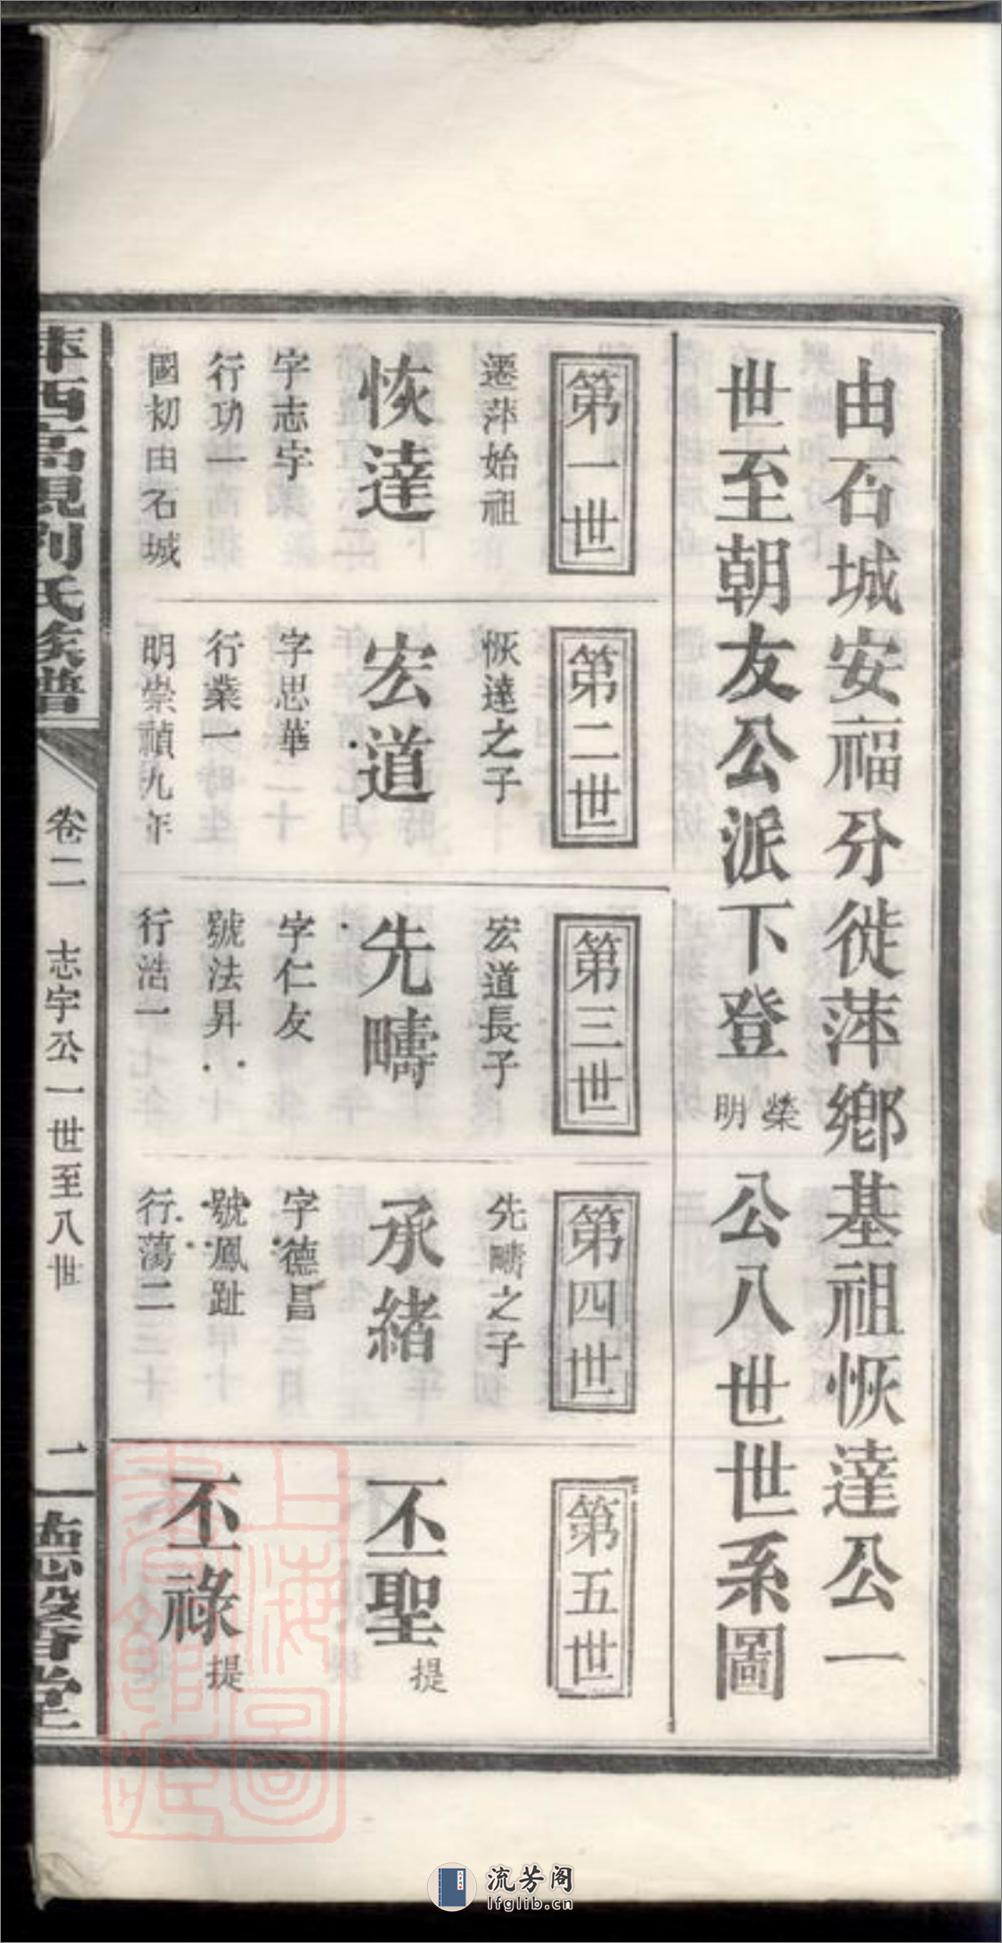 由石城安福分徙萍鄉基祖恢達公一
世至朝友公派下登榮明公八世世系圖
第一世
遷萍始祖
恢達
字志宇
行功一
國初由石城
第二世
恢達之子
宏道
字思華
行業一
明崇禎九年
第三世
宏道長子
先疇
字仁友
號法昇
行浩一
第四世
先疇之子
承緒
字德昌
號鳳趾
行蕩二
第五世
丕聖 提
丕祿 提
萍西高視劉氏族譜
卷二 志宇公一世至八世
一
德馨堂
上海圖書館藏
流芳阁
lfglib.cn